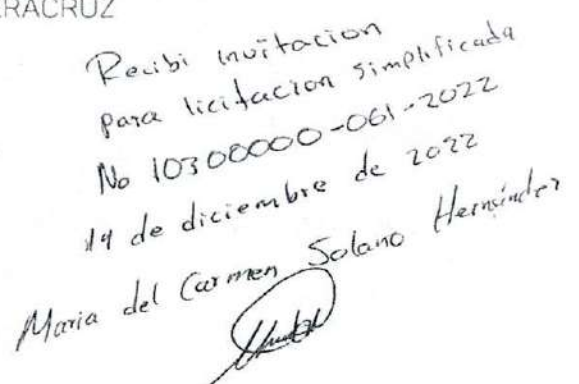 RACRUZ
Recibi invitacion
para licitacion simplificada
No 10300000-061-2022
14 de diciembre de 2022
Maria del Carmen Solano Hernández